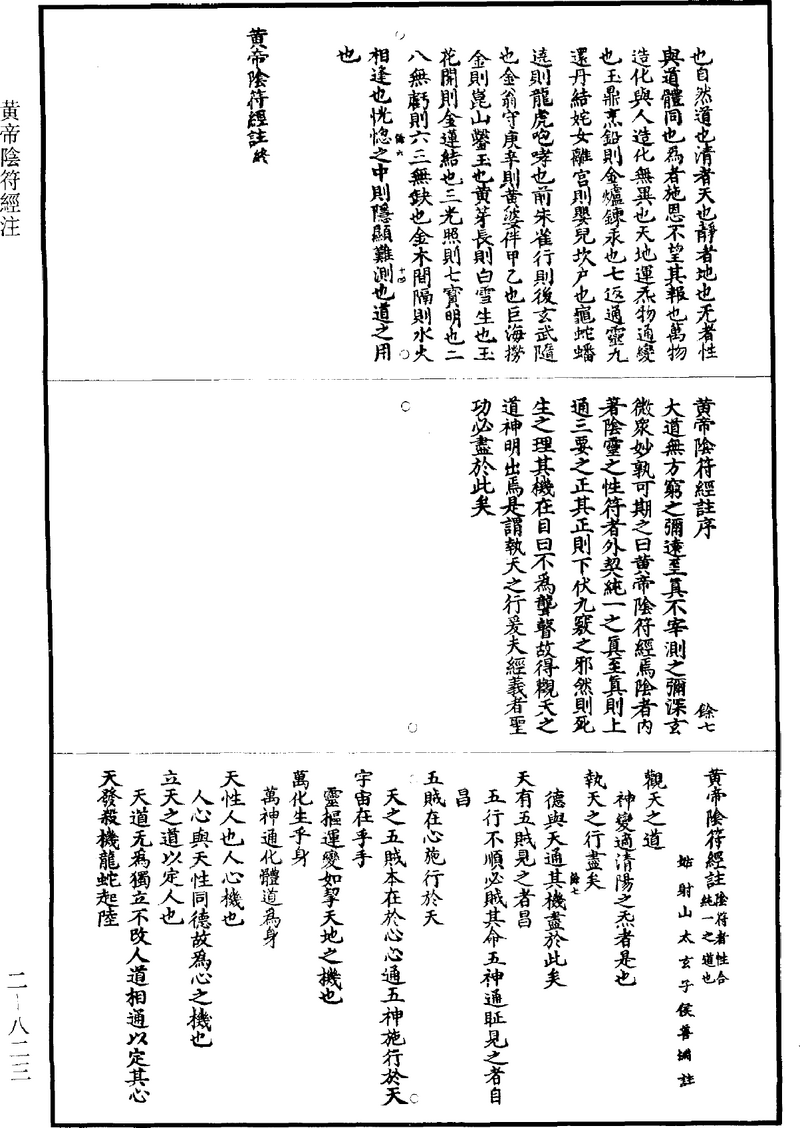 也自然道也清者天也靜者地也旡者性
與道體同也為者施恩不望其報也萬物
造化與人造化無異也天地運炁物通變
也玉鼎烹鉛則金爐鍊汞也七返通靈九
還丹結姹女離宮則嬰兒坎户也龜蛇蟠
遶則龍虎咆哮也前朱雀行則後玄武隨
也金翁守庚辛則黄婆伴甲乙也巨海撈
金則崑山鑿玉也黄芽長則白雪生也玉
花開則金蓮結也三光照則七寳明也二
八無虧則六三無缺也金木間隔則水火
餘六
十四
相逢也恍惚之中則隱顯難測也道之用
也
黄帝陰符經註終
黄帝陰符經註序
餘七
大道無方窮之彌遠至真不宰測之彌深玄
微衆妙孰可期之曰黄帝陰符經焉陰者内
著陰靈之性符者外契純一之真至真則上
通三要之正其正則下伏九竅之邪然則死
生之理其機在目曰不為聾瞽故得觀天之
道神明出焉是謂執天之行爰夫經義者聖
功必盡於此矣
黄帝陰符經註
陰符者性合
純一之道也
姑射山太玄子侯善淵註
觀天之道
神變適清陽之炁者是也
執天之行盡矣
餘七
德與天通其機盡於此矣
天有五賊見之者昌
五行不順必賊其命五神通耴見之者自
昌
五賊在心施行於天
天之五賊本在於心心通五神施行於天
宇宙在乎手
靈樞運變如挈天地之機也
萬化生乎身
萬神通化體道為身
天性人也人心機也
人心與天性同德故為心之機也
立天之道以定人也
天道无為獨立不改人道相通以定其心
天發殺機龍蛇起陸
黄帝陰符經注
二-八二三